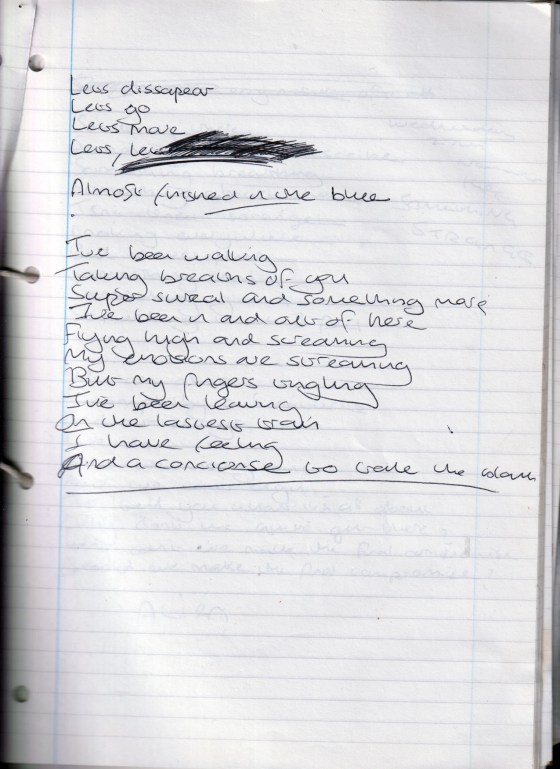 Lets dissapear
Lets go
Lets move
Lets, lets
Almost finished in the blue
I've been walking
Taking breaths of you
Super sureal and something more
I've been in and out of here
Flying high and screaming
My emotions are screaming
But my fingers tingling
I've been leaving
On the fastest train
I have feeling
And a concionse to take the